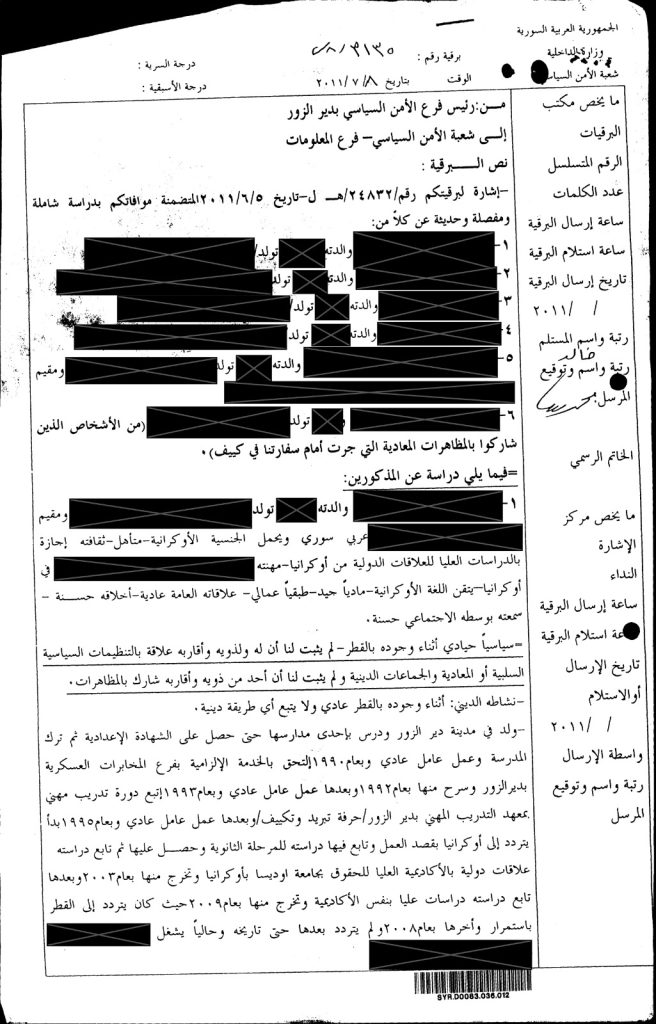 الجمهورية العربية السورية
وزارة الداخلية
شعبة الأمن السياسي
برقية رقم :
الوقت بتاريخ ٢٠١١/٧/٨
درجة السرية :
درجة الأسبقية :
ما يخص مكتب
البرقيات
الرقم المتسلسل
عدد الكلمات
ساعة إرسال البرقية
ساعة استلام البرقية
تاريخ إرسال البرقية
٢٠١١ / /
رتبة واسم المستلم
خالد
رتبة واسم وتوقيع
المرسل:
الخاتم الرسمي
ما يخص مركز
الإشارة
النداء
ساعة إرسال البرقية
ساعة استلام البرقية
تاريخ الإرسال
أوالاستلام
٢٠١١ / /
واسطة الإرسال
رتبة واسم وتوقيع
المرسل
مــن:رئيس فرع الأمن السياسي بدير الزور
إلــى شعبة الأمن السياسي– فرع المعلومات
نص الــــبرقية :
–إشارة لبرقيتكم رقم/٢٤٨٣٢/هــ ل–تاريخ ٢٠١١/٦/٥المتضمنة موافاتكم بدراسة شاملة
ومفصلة وحديثة عن كلاً من:
١– والدته تولد/
٢– والدته تولد
٣– والدته تولد/
٤– والدته تولد/
٥– والدته تولد ومقيم
٦– و تولد (من الأشخاص الذين
شاركوا بالمظاهرات المعادية التي جرت أمام سفارتنا في كييف)٠
=فيما يلي دراسة عن المذكورين:
١– والدته تولد ومقيم
عربي سوري ويحمل الجنسية الأوكرانية–متأهل–ثقافته إجازة
بالدراسات العليا للعلاقات الدولية من أوكرانيا–مهنته في
أوكرانيا–يتقن اللغة الأوكرانية–مادياً جيد–طبقياً عمالي– علاقاته العامة عادية–أخلاقه حســـنة –
سمعته بوسطه الاجتماعي حسنة٠
=سياسياً حيادي أثناء وجوده بالقطر– لم يثبت لنا أن له ولذويه وأقاربه علاقة بالتنظيمات السياسية
السلبية أو المعادية والجماعات الدينية و لم يثبت لنا أن أحد من ذويه وأقاربه شارك بالمظاهرات٠
–نشاطه الديني: أثناء وجوده بالقطر عادي ولا يتبع أي طريقة دينية٠
–ولد في مدينة دير الزور ودرس بإحدى مدارسها حتى حصل على الشهادة الإعدادية ثم ترك
المدرسة وعمل عامل عادي وبعام١٩٩٠إلتحق بالخدمة الإلزامية بفرع المخابرات العسكرية
بديرالزور وسرح منها بعام١٩٩٢وبعدها عمل عامل عادي وبعام١٩٩٣إتبع دورة تدريب مهني
بمعهد التدريب المهني بدير الزور/حرفة تبريد وتكييف/وبعدها عمل عامل عادي وبعام١٩٩٥بدأ
يتردد إلى أوكرانيا بقصد العمل وتابع فيها دراسته للمرحلة الثانوية وحصــل عليها ثم تابع دراسته
علاقات دولية بالأكاديمية العليا للحقوق بجامعة اوديسا بأوكرانيا وتخرج منها بعام٢٠٠٣وبعدها
تابع دراسته دراسات عليا بنفس الأكاديمية وتخرج منها بعام٢٠٠٩حيث كان يتردد إلى القطر
باستمرار وأخرها بعام٢٠٠٨و لم يتردد بعدها حتى تاريخه وحالياً يشغل
SYR.D0083.036.012